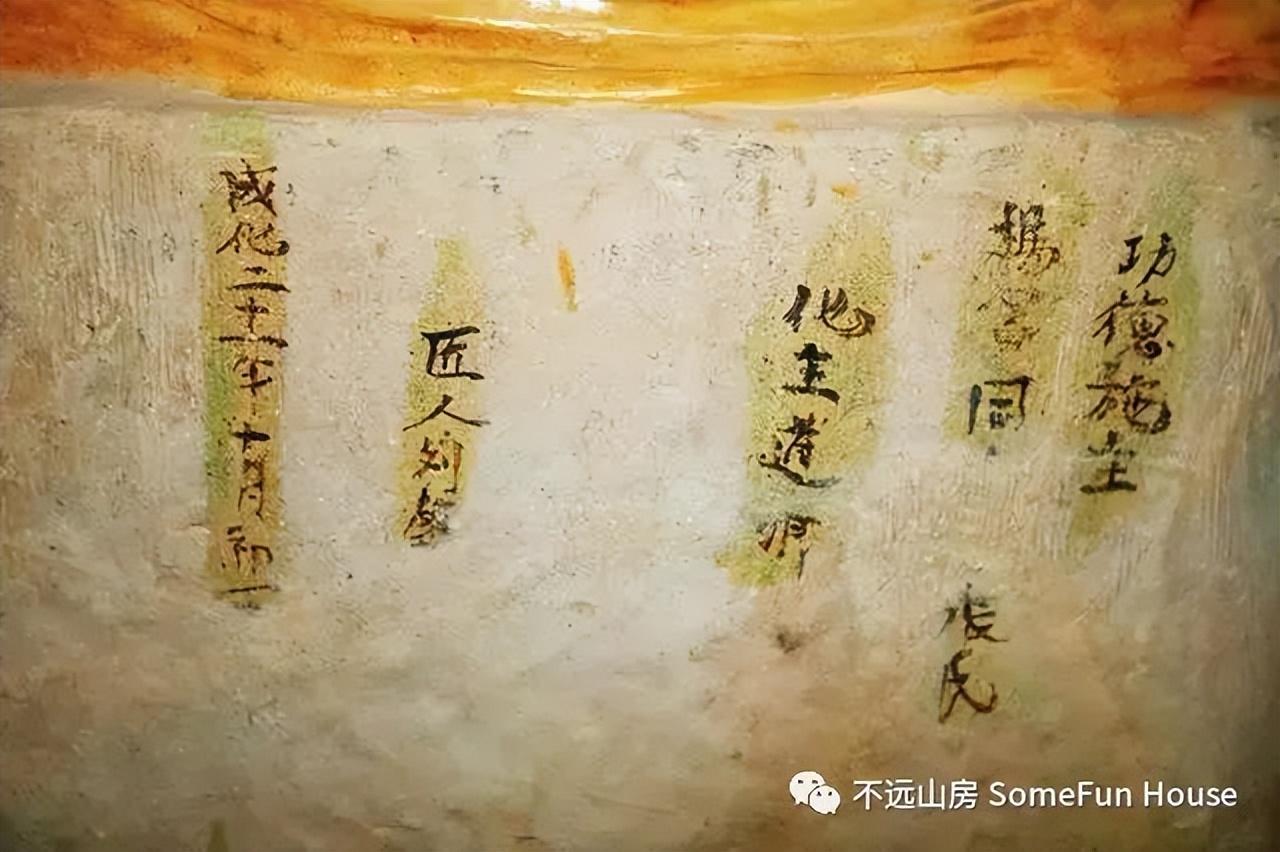 功德施主
楊同
張氏
化主道
匠人刘
成化二十一年十月初一
不远山房 SomeFun House